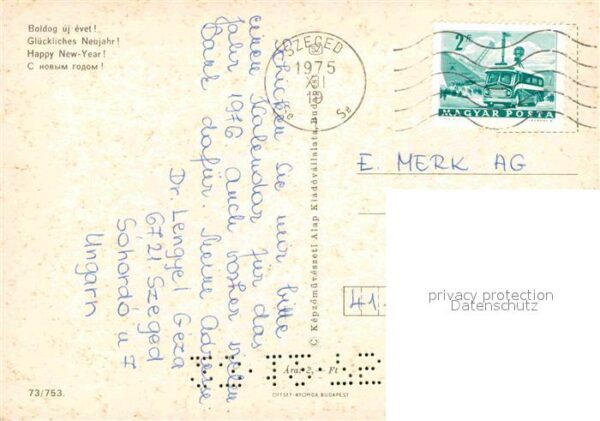 Boldog új évet!
Glückliches Neujahr!
Happy New-Year!
С новым годом!
SZEGED
1975
XII
19
5e
2 Ft
MAGYAR POSTA
E. MERK AG
41
privacy protection
Datenschutz
Schicken Sie mir bitte
einen Kalendar für das
Jahr 1976 Auch vorher vielen
Dank dafür. Meine Adresse
Dr. Lengyel Géza
6721 Szeged
Sóhordó u 7
Ungarn
© Képzőművészeti Alap Kiadóvállalata, Budapest
Ára: 2,- Ft
73/753.
OFFSET-NYOMDA, BUDAPEST